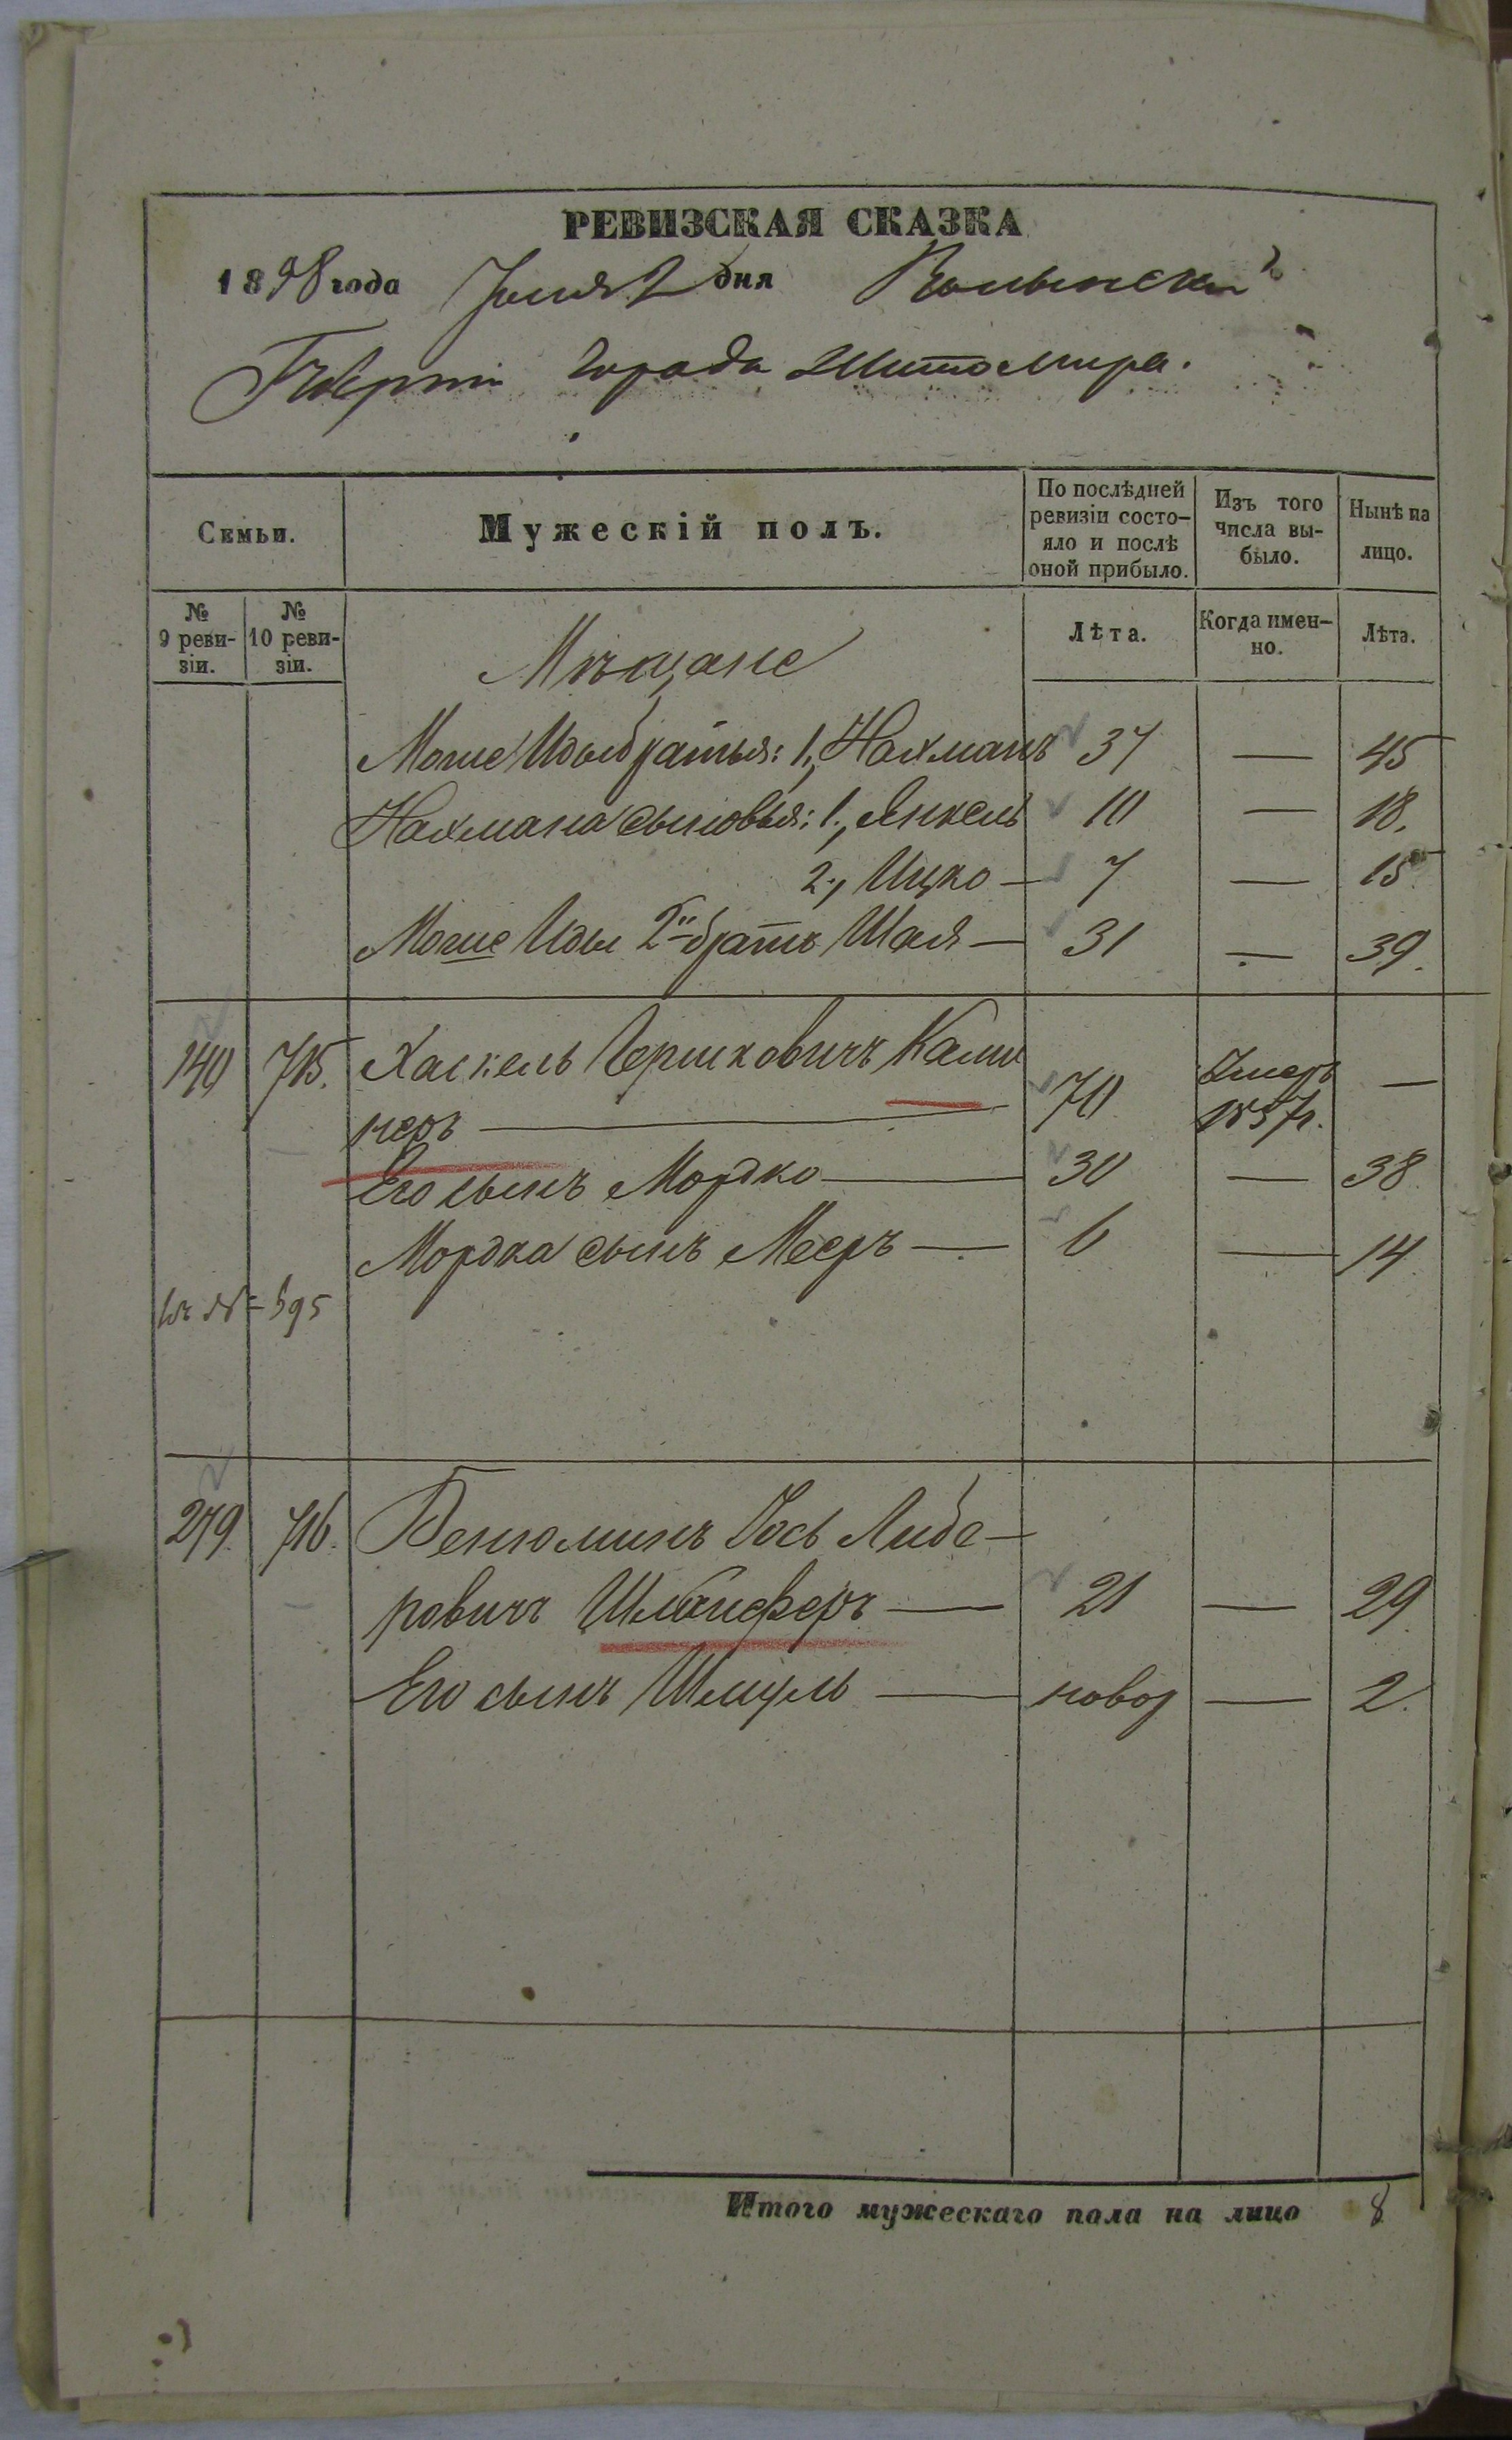 РЕВИЗСКАЯ СКАЗКА
1858 года Іюня 2 дня Волынской
Губерніи города Житомира.
Семьи.
Мужескій полъ.
По послѣдней ревизіи состо-
яло и послѣ
оной прибыло.
Изъ того
числа вы-
было.
Нынѣ на
лицо.
№
9 реви-
зіи.
№
10 реви-
зіи.
Лѣта.
Когда имен-
но.
Лѣта.
Мѣщане
Мошe Иды братья: 1., Нахманъ 37 — 45
Нахмана сыновья: 1., Янкель 10 — 18.
2., Ицко — 7 — 15
Мошe Иды 2й братъ Шая — 31 — 39.
140 715. Хаскель Гершковичъ Ками
неръ — 70 Умеръ 1857г. —
Его сынъ Мордко — 30 — 38
Мордка сынъ Мееръ — 6 — 14
595
279. 716. Бенюминъ Іось Либе-
ровичъ — 21 — 29.
Его сынъ Шмуль — новор — 2.
Итого мужескаго пола на лицо 8